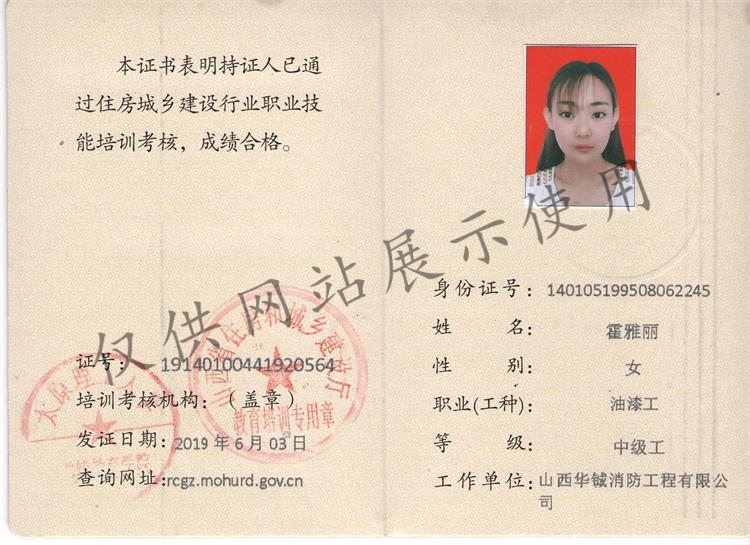 本证书表明持证人已通
过住房城乡建设行业职业技
能培训考核，成绩合格。
仅供网站展示使用
证号： 19140100441920564
培训考核机构：（盖章）
发证日期：2019 年 6 月 03 日
查询网址:rcgz.mohurd.gov.cn
山西省住房和城乡建设厅
教育培训专用章
身份证号： 140105199508062245
姓 名： 霍雅丽
性 别： 女
职业(工种)： 油漆工
等 级： 中级工
工作单位：山西华铖消防工程有限公
司